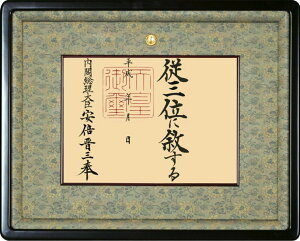 従三位に叙する
平成 年 月 日
天皇御璽
内閣総理大臣 安倍晋三 奉